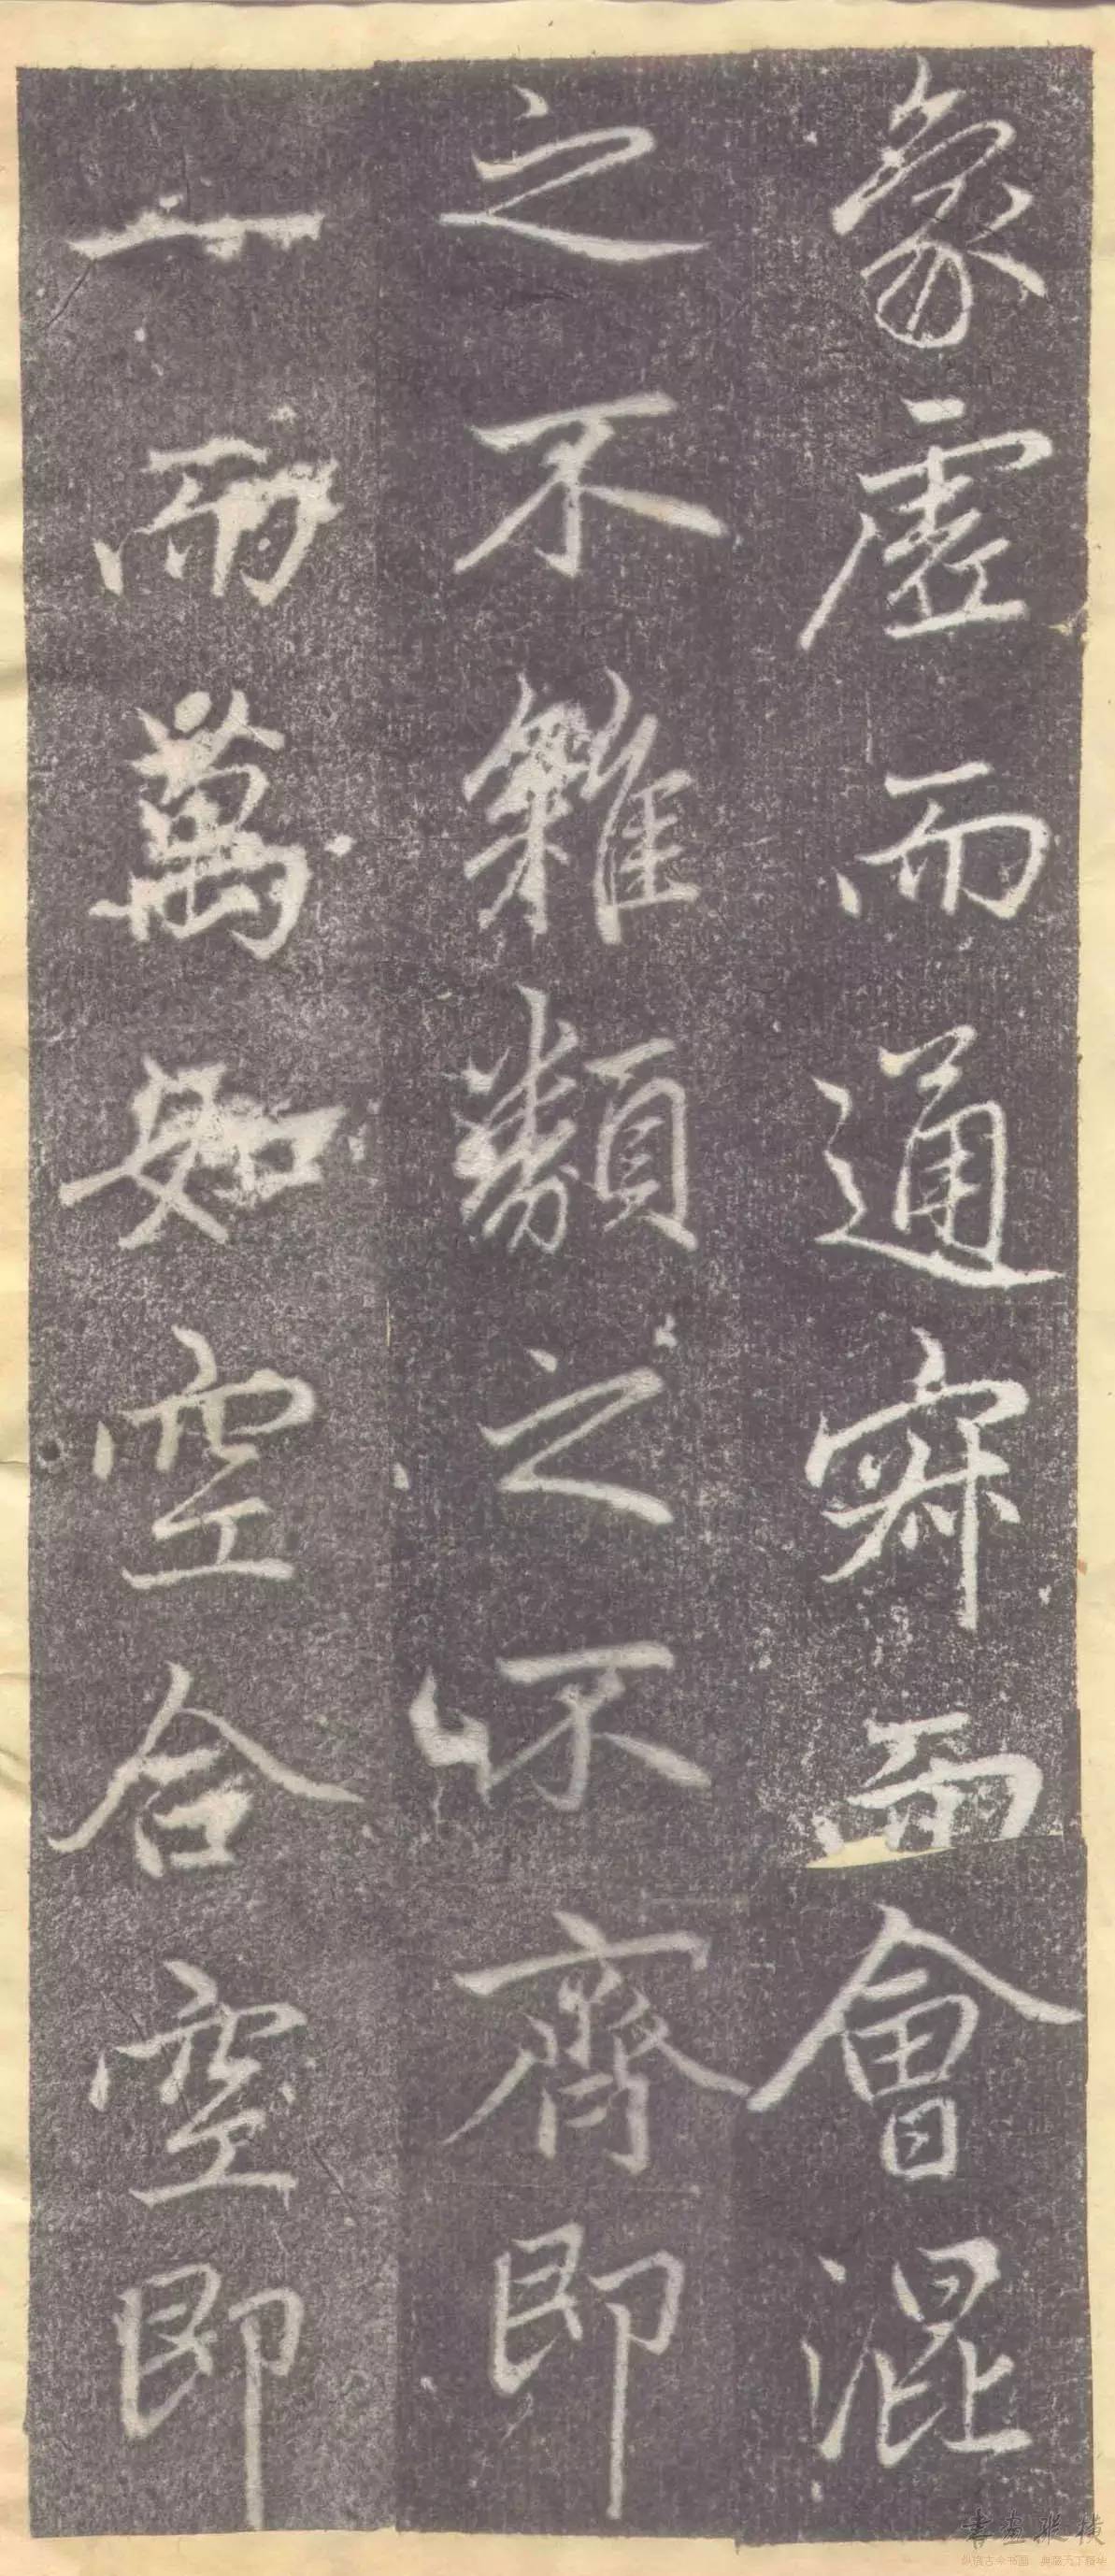 象虛而通寂而會混
之不雜類之不齊即
一而萬如空合空即
書畫縱橫